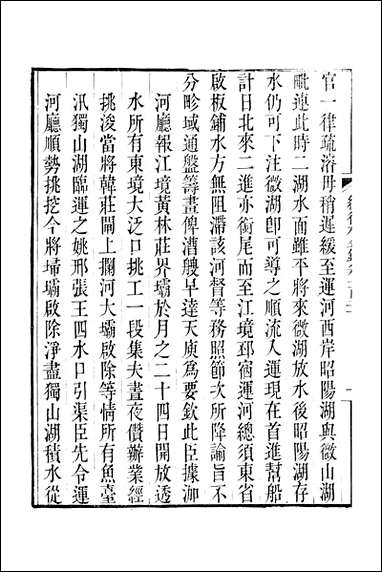 官一律疏濬毋稍遲緩至運河西岸昭陽湖與微山湖
毗連此時二湖水面雖平將來微湖放水後昭陽湖存
水仍可下注微湖卽可導之順流入運現在首進幫船
計日北來二進亦銜尾而至江境邳宿運河總須東省
啟板鋪水方無阻滯該河督等務照節次所降諭旨不
分畛域通盤籌畫俾漕艘早達天庾爲要欽此臣據泇
河廳報江境黃林莊界壩於月之二十四日開放透
水所有東境大泛口挑工一段集夫晝夜儹辦業經
挑浚當將韓莊閘上攔河大壩啟除等情所有魚臺
汛獨山湖臨運之姚邢張王四水口引渠臣先令運
河廳順勢挑挖今將埽壩啟除淨盡獨山湖積水從